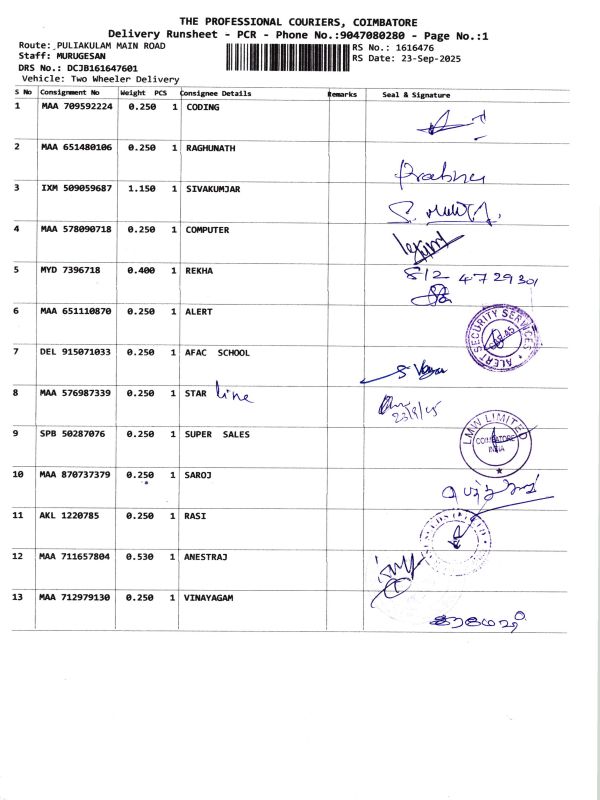 THE PROFESSIONAL COURIERS, COIMBATORE
Delivery Runsheet - PCR - Phone No.:9047080280 - Page No.:1
Route: PULIAKULAM MAIN ROAD RS No.: 1616476
Staff: MURUGESAN RS Date: 23-Sep-2025
DRS No.: DCJB161647601
Vehicle: Two Wheeler Delivery
S No Consignment No Weight PCS Consignee Details Remarks Seal & Signature
1 MAA 709592224 0.250 1 CODING
2 MAA 651480106 0.250 1 RAGHUNATH Prabhu
3 IXM 509059687 1.150 1 SIVAKUMJAR
4 MAA 578090718 0.250 1 COMPUTER
5 MYD 7396718 0.400 1 REKHA 812 4729301
6 MAA 651110870 0.250 1 ALERT ALERT SECURITY SERVICES
7 DEL 915071033 0.250 1 AFAC SCHOOL
8 MAA 576987339 0.250 1 STAR line 23/9/25
9 SPB 50287076 0.250 1 SUPER SALES LMW LIMITED COIMBATORE INDIA
10 MAA 870737379 0.250 1 SAROJ
11 AKL 1220785 0.250 1 RASI
12 MAA 711657804 0.530 1 ANESTRAJ
13 MAA 712979130 0.250 1 VINAYAGAM